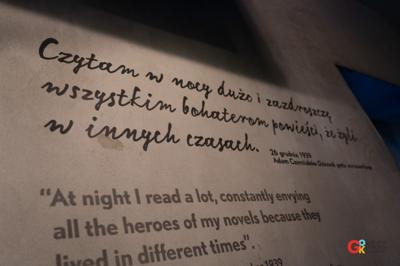 Czytam w nocy dużo i zazdroszczę
wszystkim bohaterom powieści, że żyli
w innych czasach.
26 grudnia 1939
"At night I read a lot, constantly envying
all the heroes of my novels because they
lived in different times".
1939
GOK